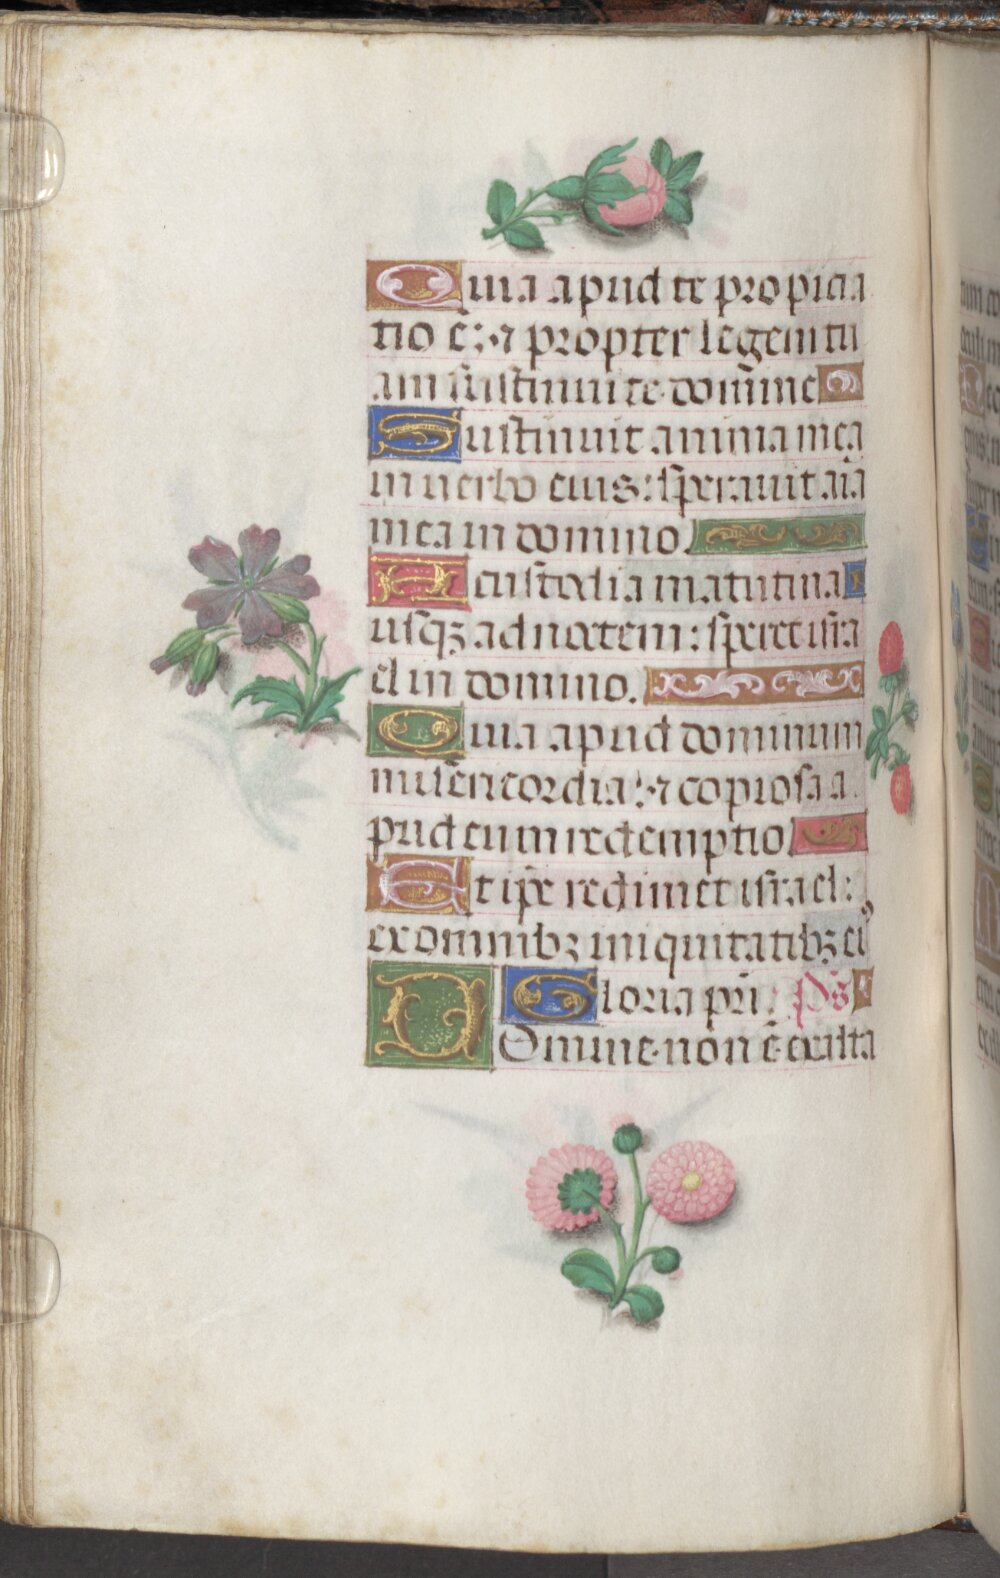 Quia apud te propicia
tio ē: ⁊ propter legem tu
am sustinui te domine
Sustinuit anima mea
in uerbo eius: sperauit aīa
mea in domino.
A custodia matutina
usqꝫ ad noctem: speret isra
el in domino.
Quia apud dominum
misericordia: ⁊ copiosa a
pud eum redemptio
Et ipse redimet israel:
ex omnibꝫ iniquitatibꝫ eiꝰ
Gloria pr̄i. ps̄
Domine non ē exalta